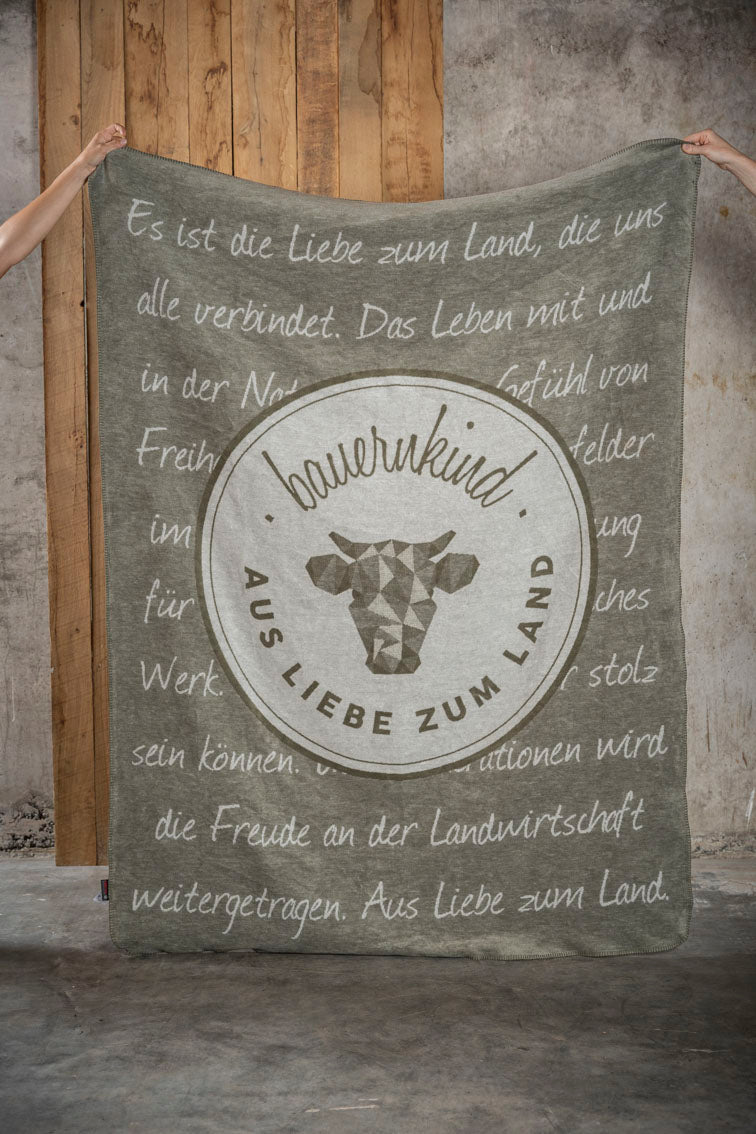 Es ist die Liebe zum Land, die uns
alle verbindet. Das Leben mit und
in der Gefühl von
felder
im
für
Werk. stolz
sein können. wird
die Freude an der Landwirtschaft
weitergetragen. Aus Liebe zum Land.
bauernkind
AUS LIEBE ZUM LAND